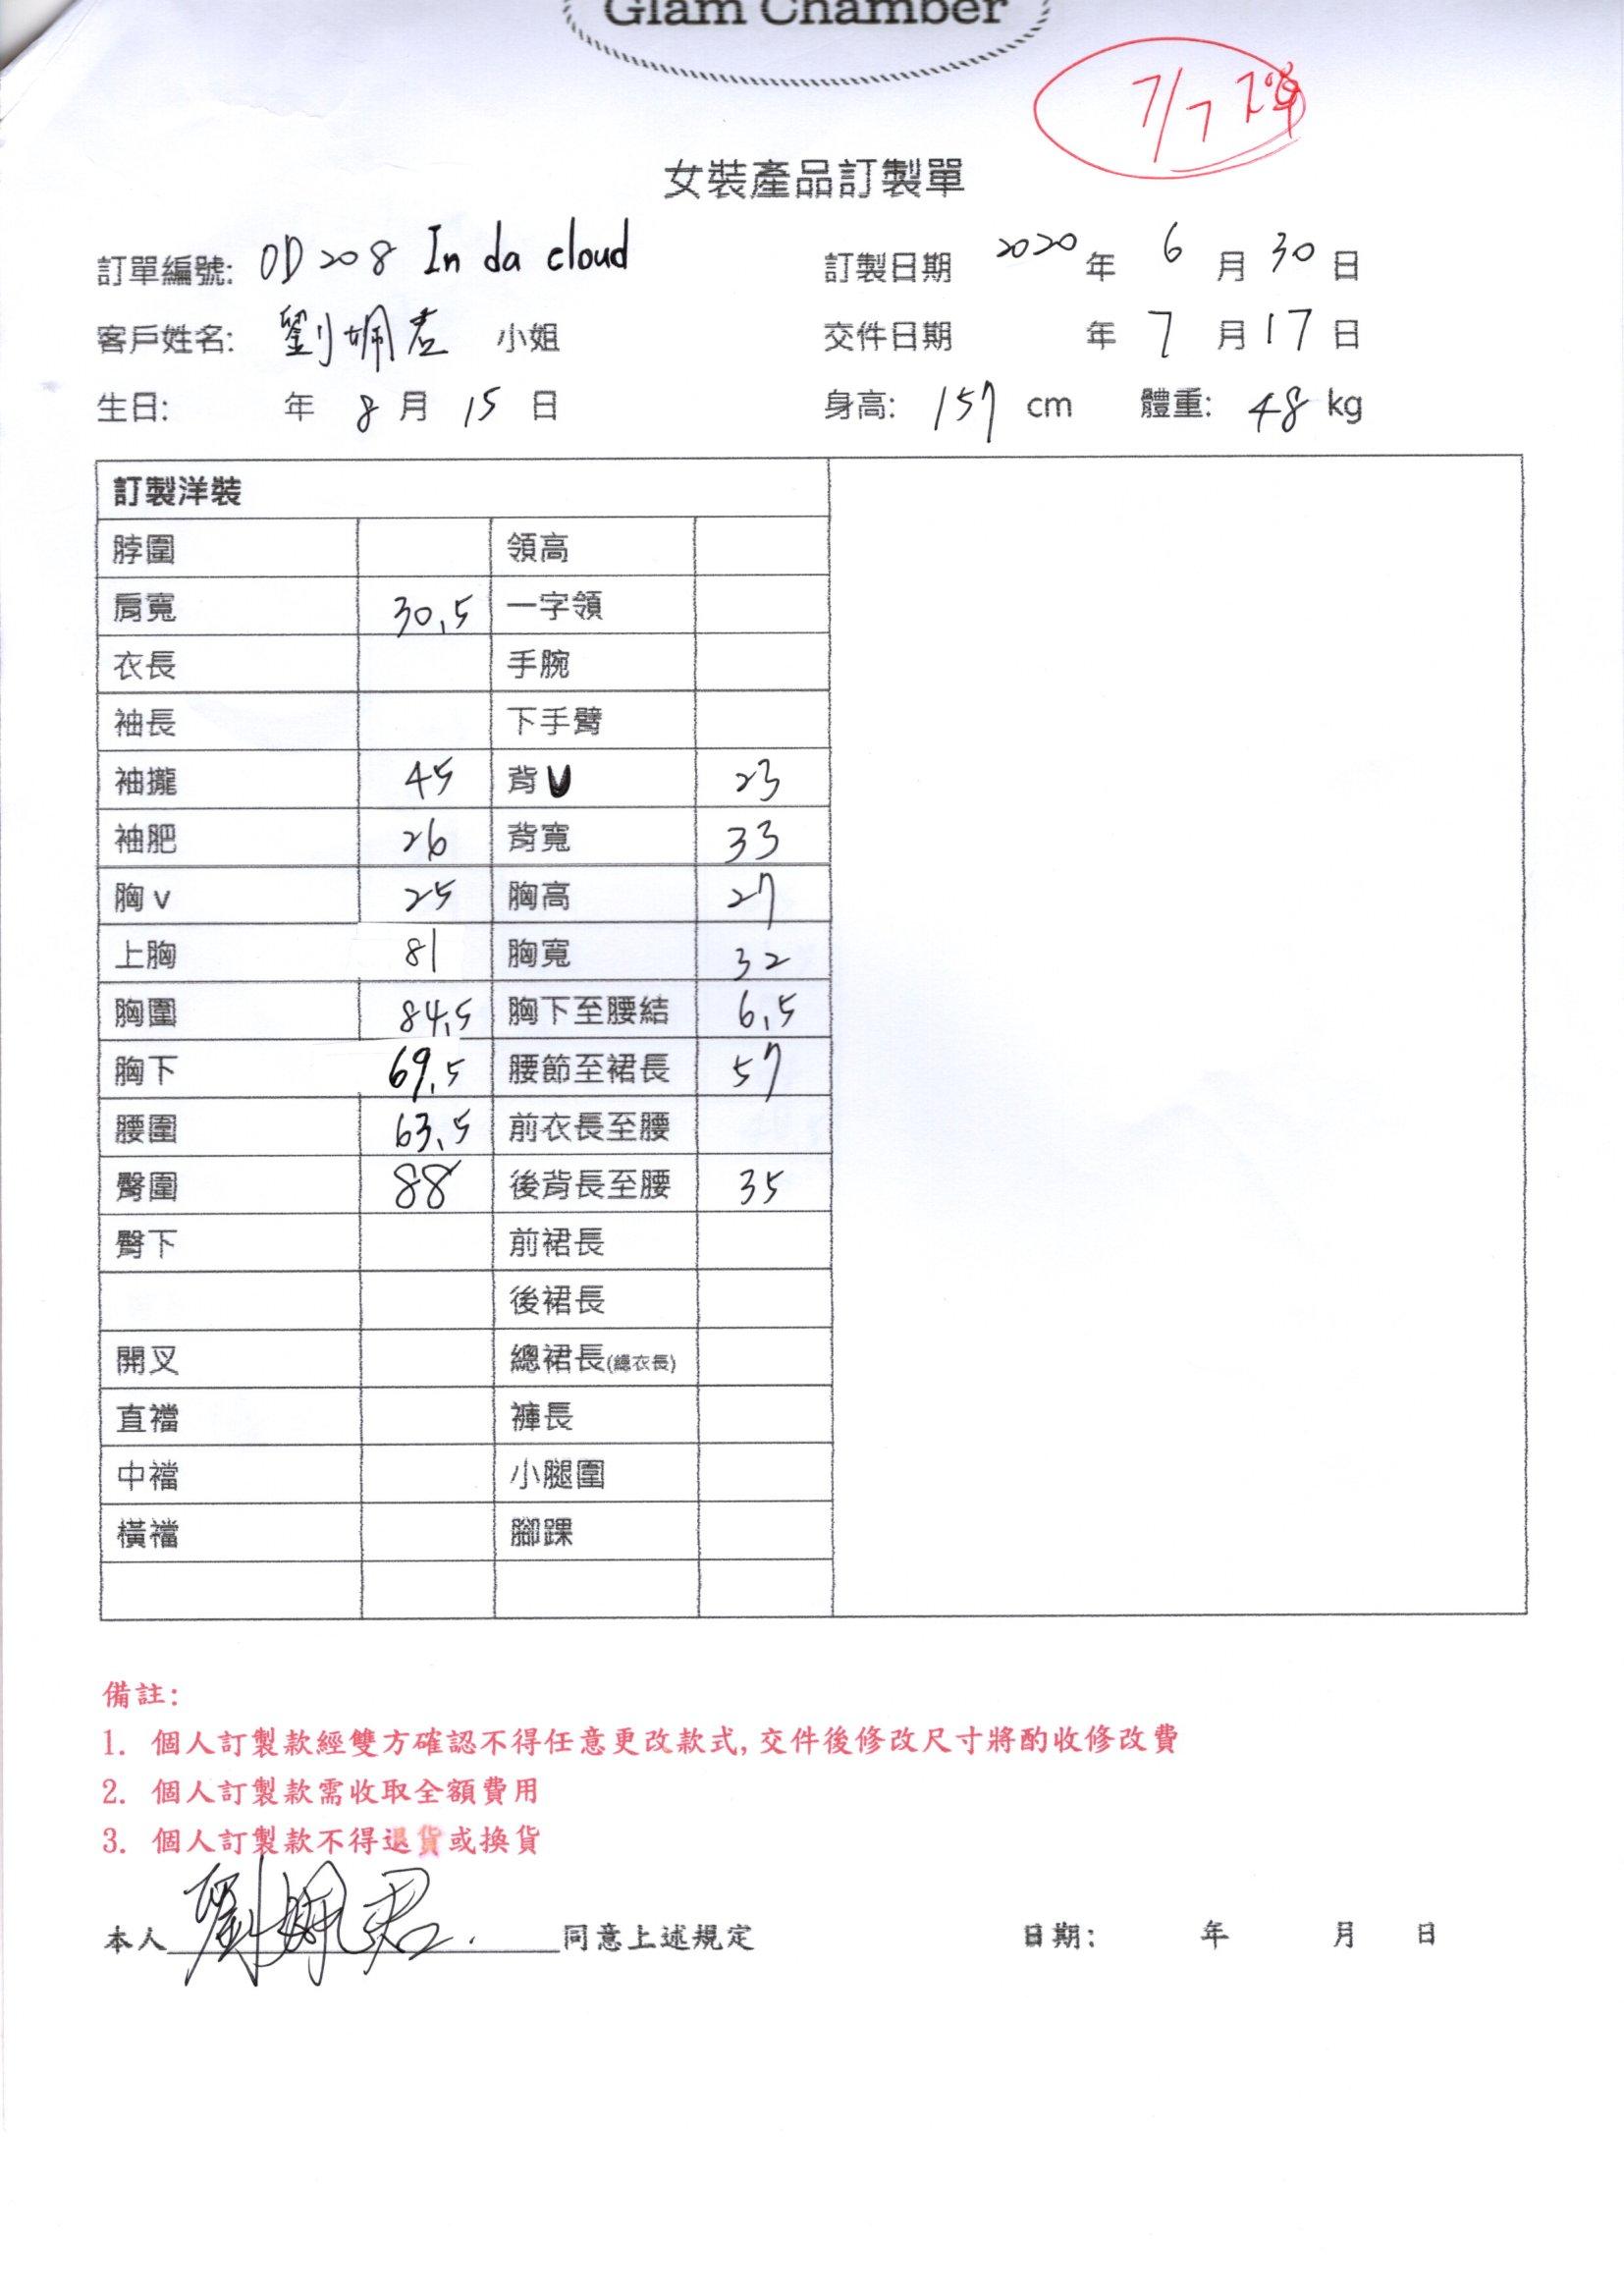 Glam Chamber
7/7
女裝產品訂製單
訂單編號: OD208 In da cloud 訂製日期 2020 年 6 月 30 日
客戶姓名: 劉姵君 小姐 交件日期 年 7 月 17 日
生日: 年 8 月 15 日 身高: 157 cm 體重: 48 kg
訂製洋裝
脖圍 領高
肩寬 30.5 一字領
衣長 手腕
袖長 下手臂
袖攏 45 背V 23
袖肥 26 背寬 33
胸v 25 胸高 27
上胸 81 胸寬 32
胸圍 84.5 胸下至腰結 6.5
胸下 69.5 腰節至裙長 57
腰圍 63.5 前衣長至腰
臀圍 88 後背長至腰 35
臀下 前裙長
後裙長
開叉 總裙長(總衣長)
直襠 褲長
中襠 小腿圍
橫襠 腳踝
備註:
1. 個人訂製款經雙方確認不得任意更改款式,交件後修改尺寸將酌收修改費
2. 個人訂製款需收取全額費用
3. 個人訂製款不得退貨或換貨
本人 劉姵君 同意上述規定 日期: 年 月 日